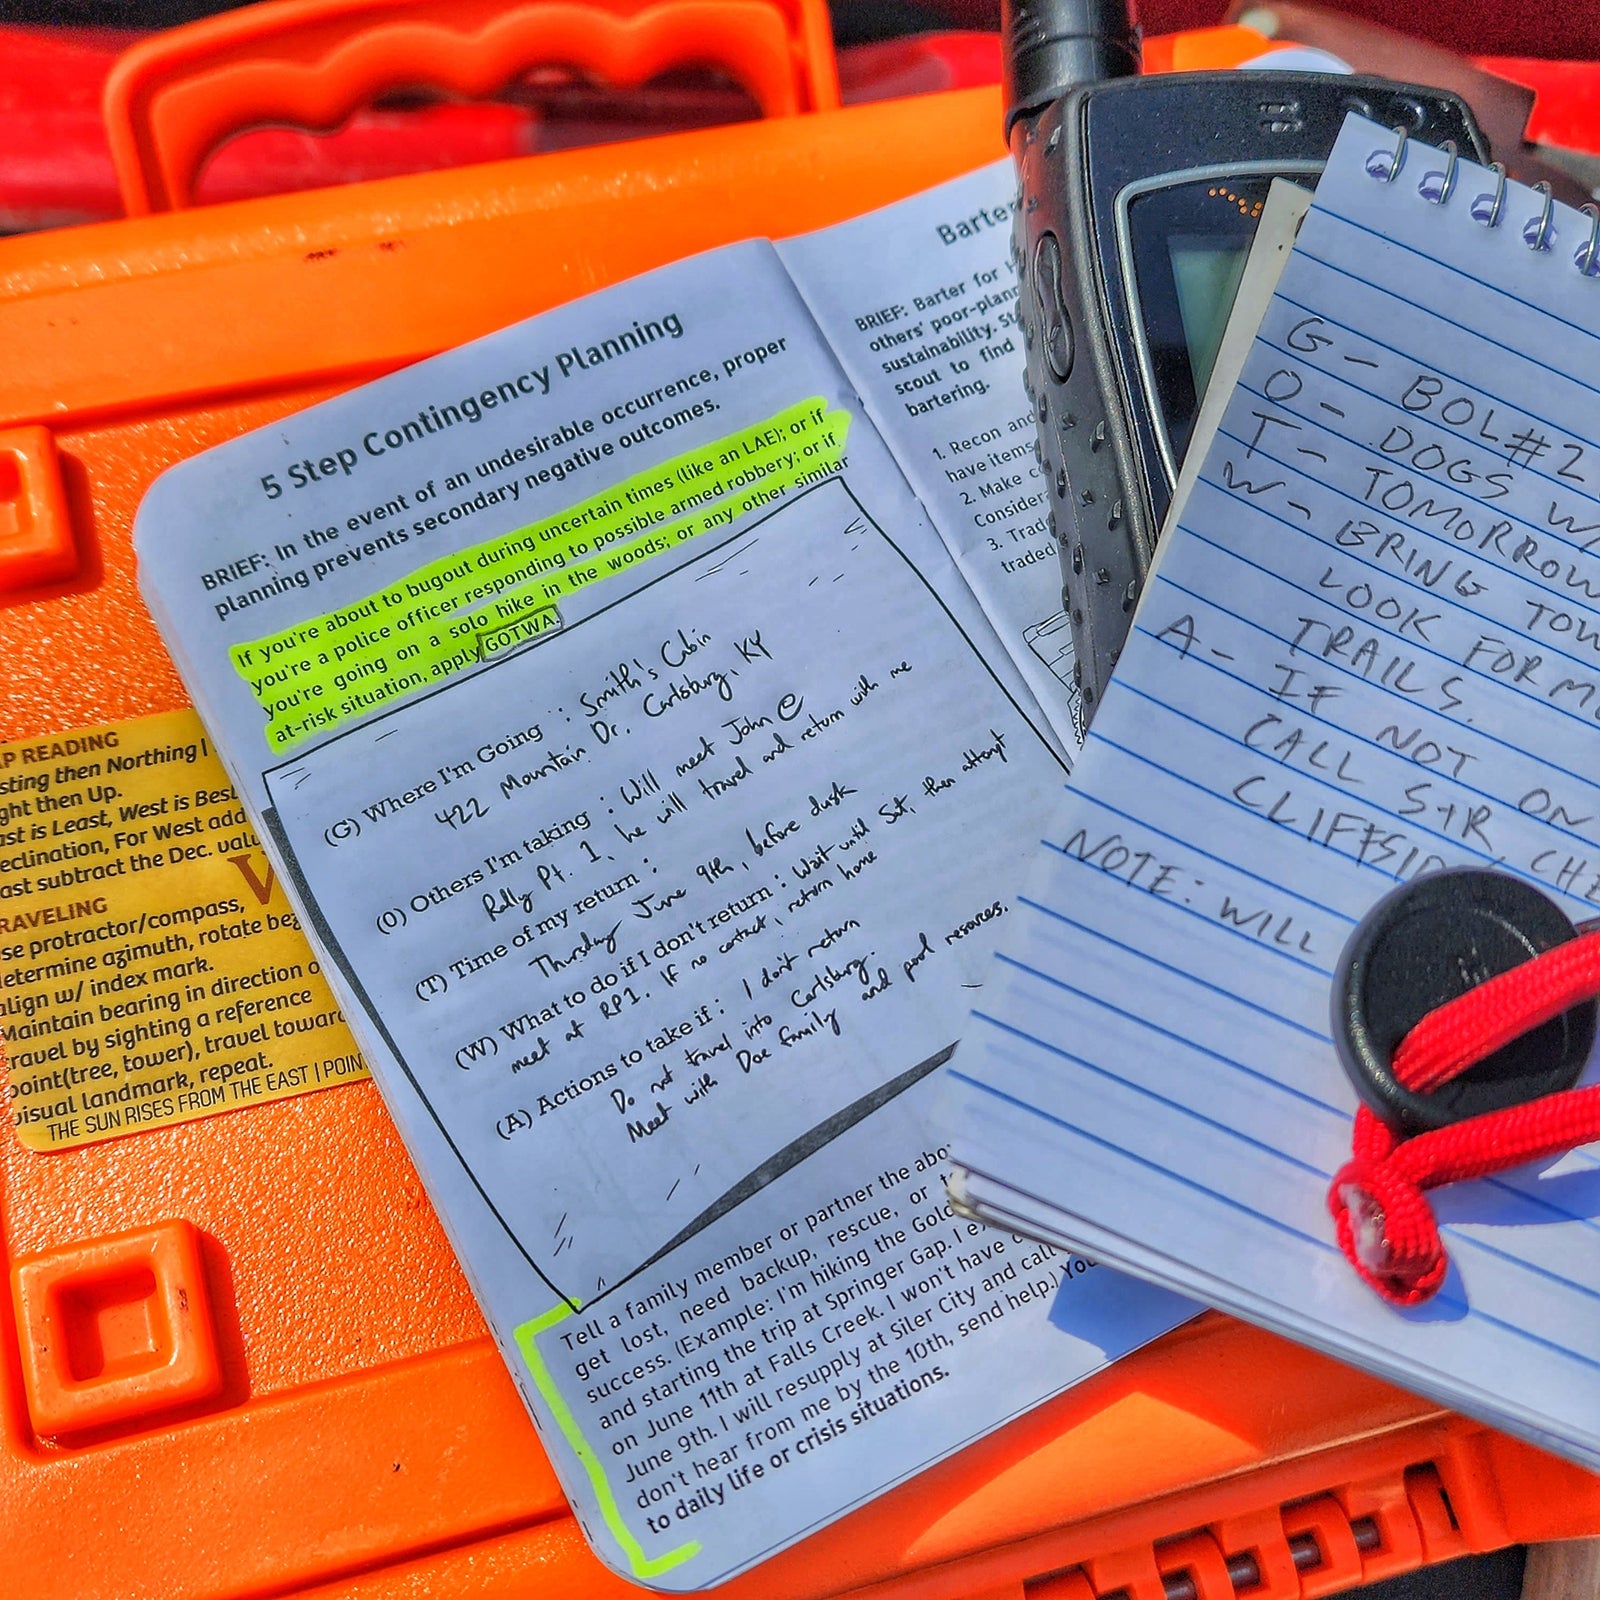 5 Step Contingency Planning
BRIEF: In the event of an undesirable occurrence, proper
planning prevents secondary negative outcomes.
If you're about to bugout during uncertain times (like an LAE); or if
you're a police officer responding to possible armed robbery; or if
you're going on a solo hike in the woods; or any other similar
at-risk situation, apply GOTWA.
(G) Where I'm Going : Smith's Cabin
422 Mountain Dr. Carlsburg, KY
(O) Others I'm taking : Will meet John @
Rally Pt. 1, he will travel and return with me
(T) Time of my return :
Thursday June 9th, before dusk
(W) What to do if I don't return : Wait until Sat, then attempt
meet at RP1. If no contact, return home
(A) Actions to take if : I don't return
Do not travel into Carlsburg.
Meet with Doe family and pool resources.
Tell a family member or partner the
get lost, need backup, rescue, or
success. (Example: I'm hiking the
and starting the trip at Springer Gap. I
on June 11th at Falls Creek. I won't have
June 9th. I will resupply at Siler City and call
don't hear from me by the 10th, send help.)
to daily life or crisis situations.
Barter
BRIEF: Barter for
others' poor-
sustainability.
scout to find
bartering.
1. Recon and
have items
2. Make
3.
traded
G - BOL#2
O - DOGS
T - TOMORROW
W - BRING
LOOK FOR
TRAILS.
A - IF NOT ON
CALL S+R,
NOTE: WILL
READING
then Northing |
then Up.
is Least, West is Best
For West add
subtract the Dec.
protractor/compass,
azimuth, rotate
w/ index mark.
bearing in direction
by sighting a reference
(tree, tower), travel
landmark, repeat.
THE SUN RISES FROM THE EAST |